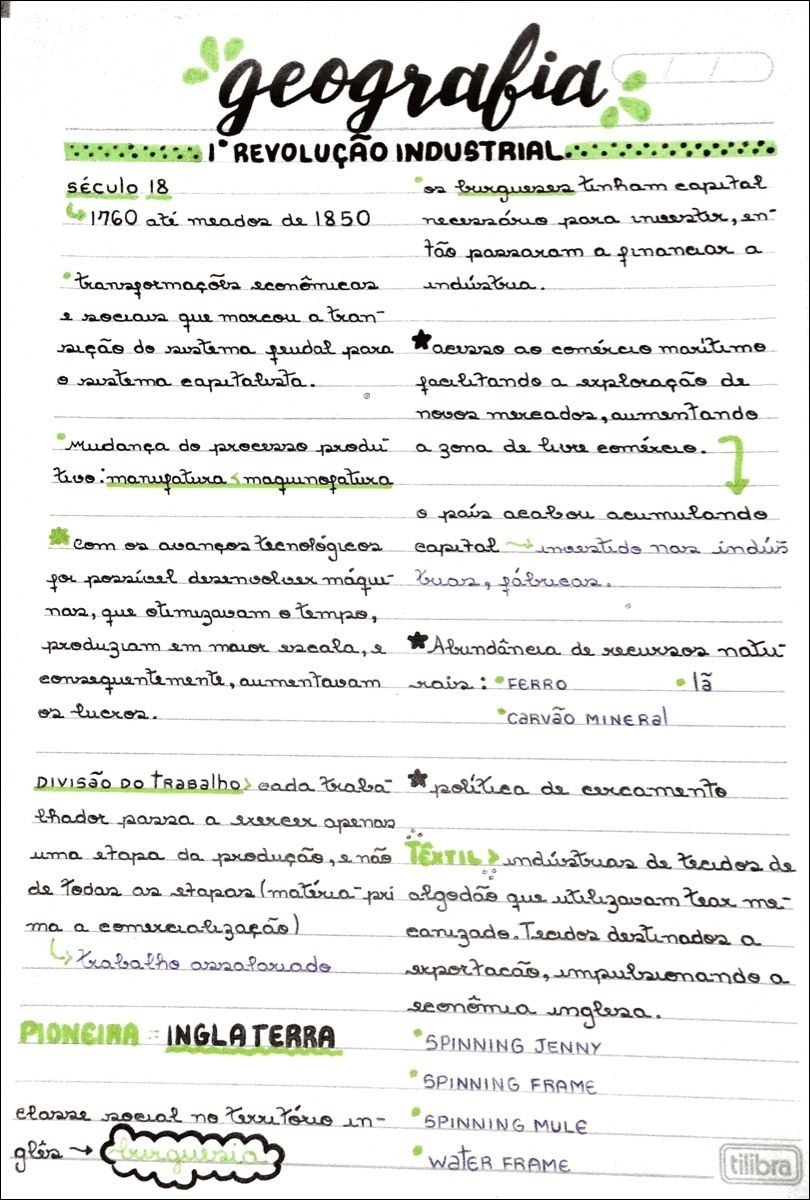 geografia
1° REVOLUÇÃO INDUSTRIAL
SÉCULO 18
1760 até meados de 1850
• transformações econômicas
e sociais que marcou a tran-
sição do sistema feudal para
o sistema capitalista.
• Mudança do processo produ-
tivo: manufatura < maquinofatura
com os avanços tecnológicos
foi possível desenvolver máqui-
nas, que otimizavam o tempo,
produziam em maior escala, e
consequentemente, aumentavam
os lucros.
DIVISÃO DO TRABALHO > cada traba-
lhador passa a exercer apenas
uma etapa da produção, e não
de todas as etapas (matéria-pri
ma a comercialização)
↳ trabalho assalariado
PIONEIRA = INGLATERRA
classe social no território in-
glês → burguesia
• os burgueses tinham capital
necessário para investir, en-
tão passaram a financiar a
indústria.
★ acesso ao comércio marítimo
facilitando a exploração de
novos mercados, aumentando
a zona de livre comércio.
o país acabou acumulando
capital → investido nas indús
trias, fábricas.
★ Abundância de recursos natu-
rais: • FERRO • lã
• CARVÃO MINERAL
★ política de cercamento
TÊXTIL > indústrias de tecidos de
algodão que utilizavam tear me-
canizado. Tecidos destinados a
exportacão, impulsionando a
econômia inglesa.
• SPINNING JENNY
• SPINNING FRAME
• SPINNING MULE
• WATER FRAME
tilibra